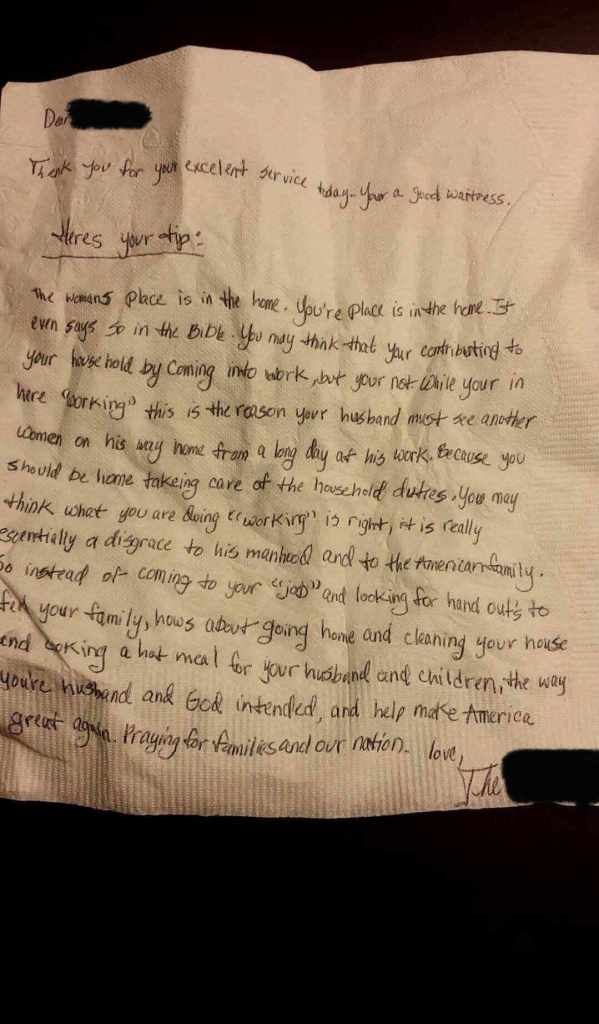 Dear
Thank you for your excelent service today. Your a good waitress.
Heres your tip:
The womans place is in the home. You're place is in the home. It
even says so in the Bible. You may think that your contributing to
your household by coming into work, but your not. While your in
here "working" this is the reason your husband must see another
women on his way home from a long day at his work. Because you
should be home takeing care of the household duties. You may
think what you are doing "working" is right, it is really
essentially a disgrace to his manhood and to the American family.
So instead of coming to your "job" and looking for hand out's to
feed your family, hows about going home and cleaning your house
and cooking a hot meal for your husband and children, the way
you're husband and God intended, and help make America
great again. Praying for families and our nation. love,
The